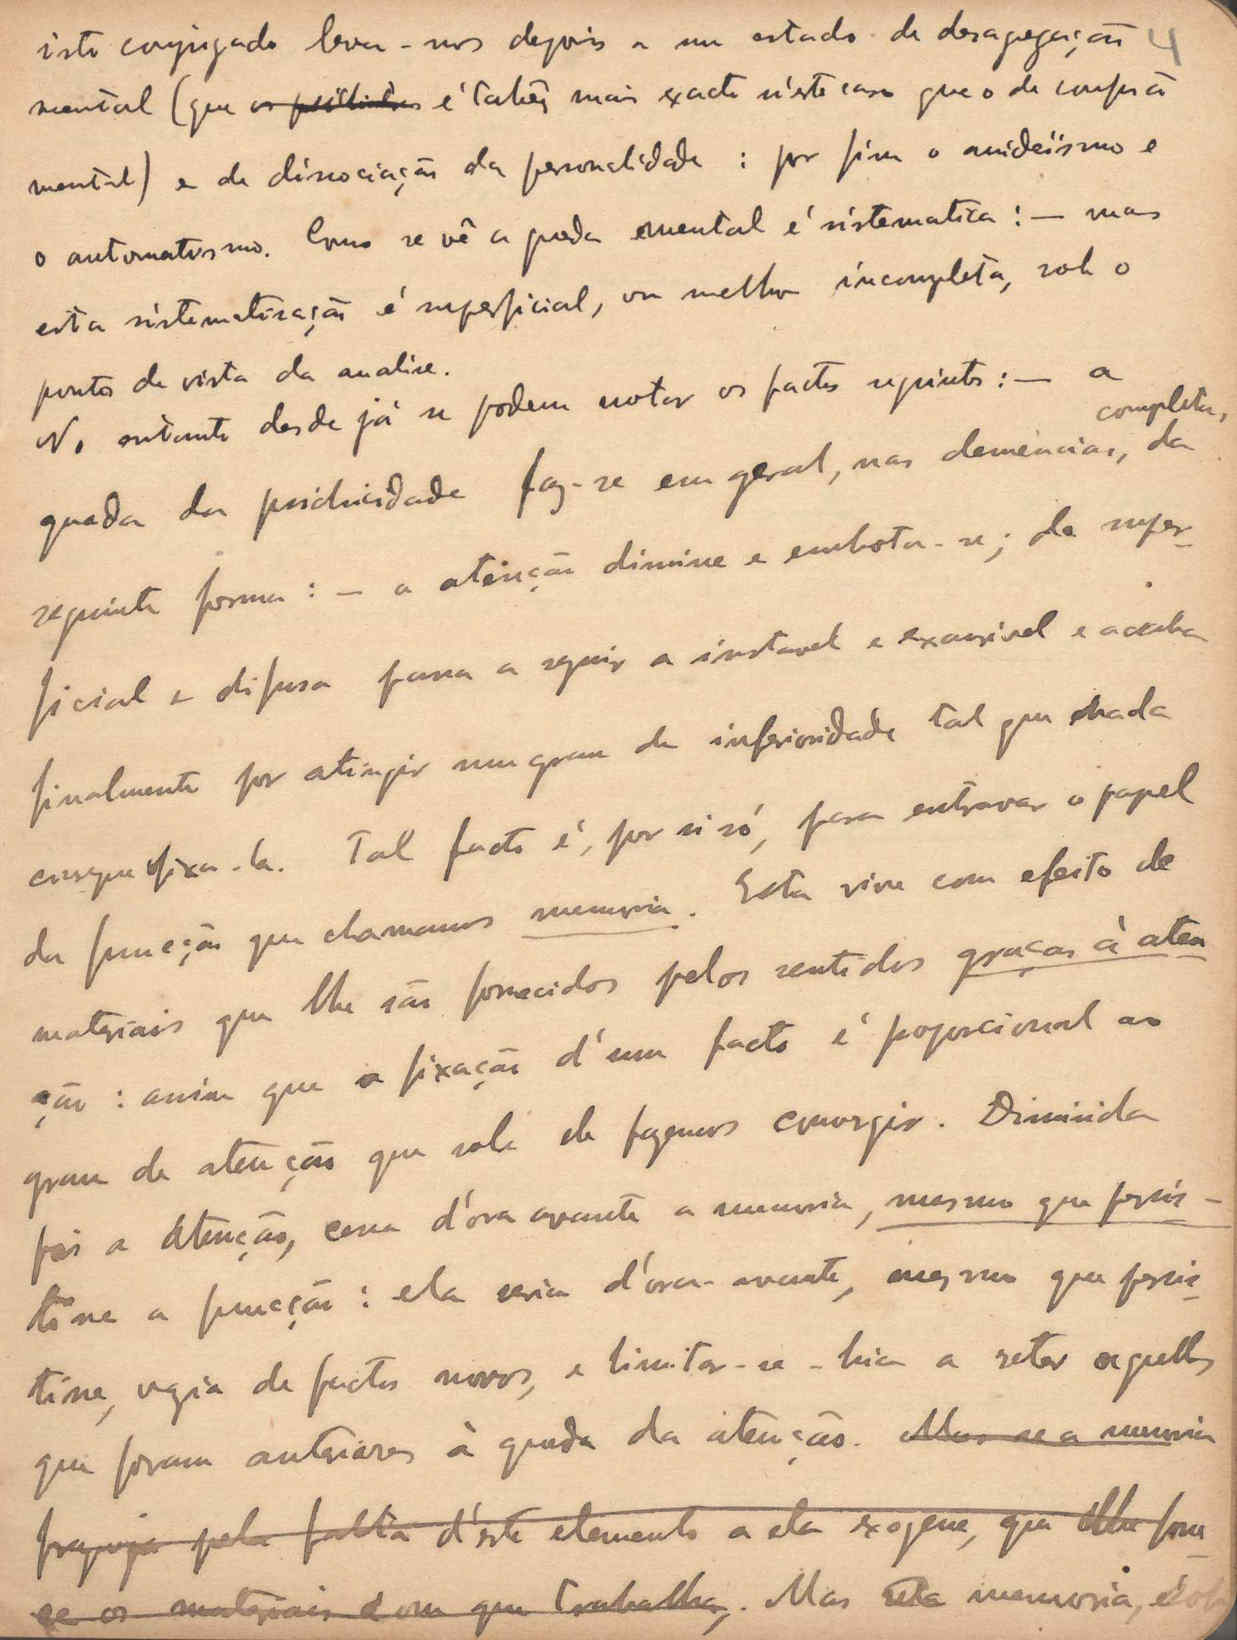 isto conjugado leva-nos depois a um estado de desagregação 4
mental (que é talvez mais exacto n'este caso que o de confusão
mental) e de dissociação da personalidade : por fim o anideísmo e
o automatismo. Como se vê a queda mental é sistematica : — mas
esta sistematisação é superficial, ou melhor incompleta, sob o
ponto de vista da analise.
No entanto desde já se podem notar os factos seguintes : — a
completa,
queda da psichicidade faz-se em geral, nas demencias, da
seguinte forma : — a atenção diminue e embota-se ; de super-
ficial e difusa passa a seguir a instavel e exaurivel e acaba
finalmente por atingir um grau de inferioridade tal que nada
consegue fixa-la. Tal facto é, por si só, para entravar o papel
da funcção que chamamos memoria. Esta vive com efeito de
materiais que lhe são fornecidos pelos sentidos graças à aten
ção : assim que a fixação d'um facto é proporcional ao
grau de atenção que sobre ele fazemos convergir. Diminida
pois a atenção, cessa d'ora avante a memoria, mesmo que persis-
tisse a funcção : ela seria d'ora-avante, mesmo que persis-
tisse, vazia de factos novos, e limitar-se-hia a reter aquelles
que foram anteriores à queda da atenção. Mas se a memoria
fraqueja pela falta d'este elemento a ela exogene, que lhe forne
ce os materiais com que trabalha, . Mas esta memoria, é sob